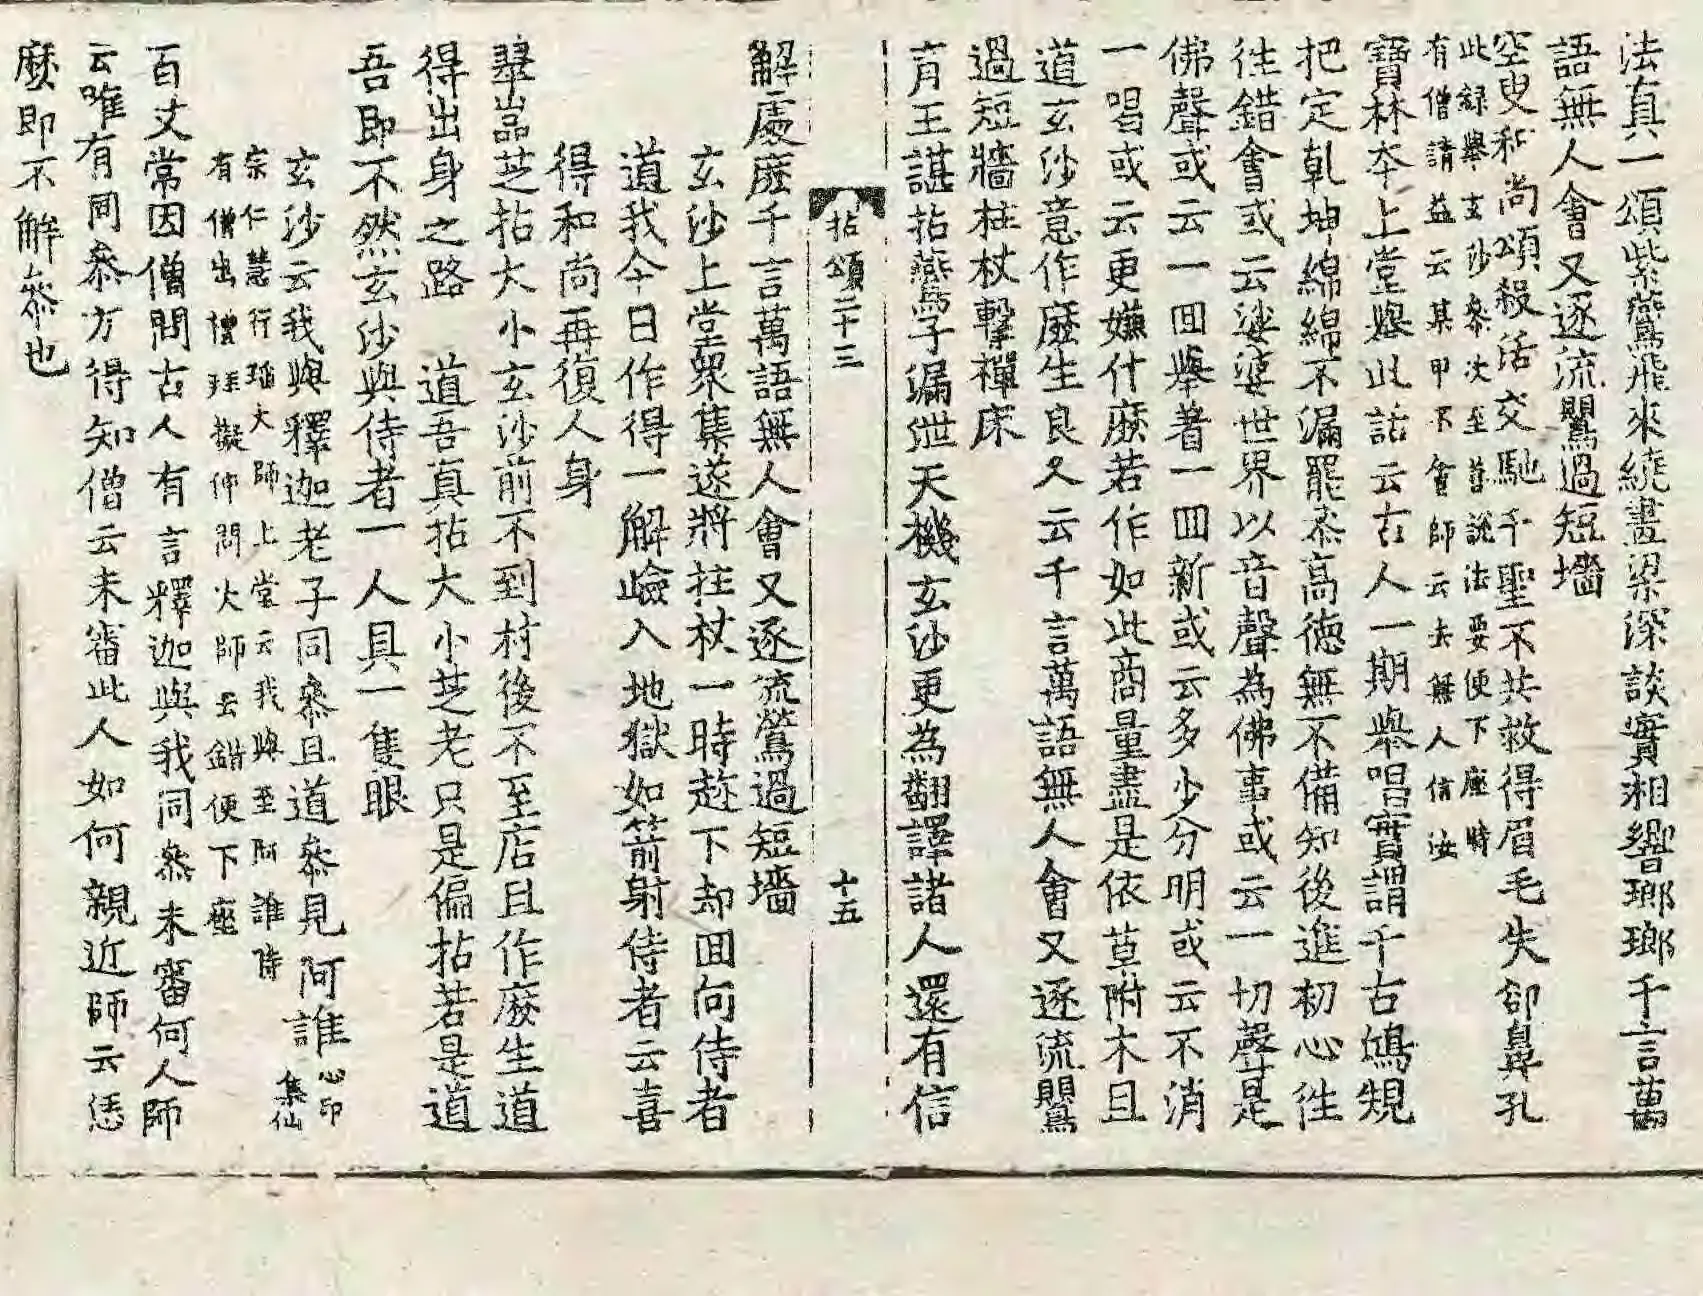 法真一頌紫鷰飛來繞畫梁深談實相響瑯瑯千言萬
語無人會又逐流鸎過短墻
空叟和尚頌殺活交馳千聖不共救得眉毛失卻鼻孔
此錄舉玄沙叅次至善說法要便下座時
有僧請益云某甲不會師云去無人信汝
寶林夲上堂舉此話云古人一期舉唱實謂千古䲭䂓
把定乹坤綿綿不漏罷叅高德無不備知後進初心徃
徃錯會或云娑婆世界以音聲為佛事或云一切聲是
佛聲或云一囬舉著一囬新或云多少分明或云不消
一唱或云更嫌什麽若作如此商量盡是依草附木且
道玄沙意作麽生良久云千言萬語無人會又逐流鸎
過短牆柱杖擊禪床
育王諶拈鷰子漏泄天機玄沙更為翻譯諸人還有信
拈頌二十三 十五
解處麽千言萬語無人會又逐流鶯過短墻
玄沙上堂衆集遂將拄杖一時趂下却囬向侍者
道我今日作得一解嶮入地獄如箭射侍者云喜
得和尚再復人身
翠嵓芝拈大小玄沙前不到村後不至店且作麽生道
得出身之路 道吾真拈大小芝老只是偏拈若是道
吾即不然玄沙與侍者一人具一隻眼
玄沙云我與釋迦老子同叅且道叅見阿誰 心印 集仙
宗仁慧行瑫大師上堂云我與至阿誰時
有僧出禮拜擬伸問次師云錯便下座
百丈常因僧問古人有言釋迦與我同叅未審何人師
云唯有同叅方得知僧云未審此人如何親近師云恁
麽即不解叅也